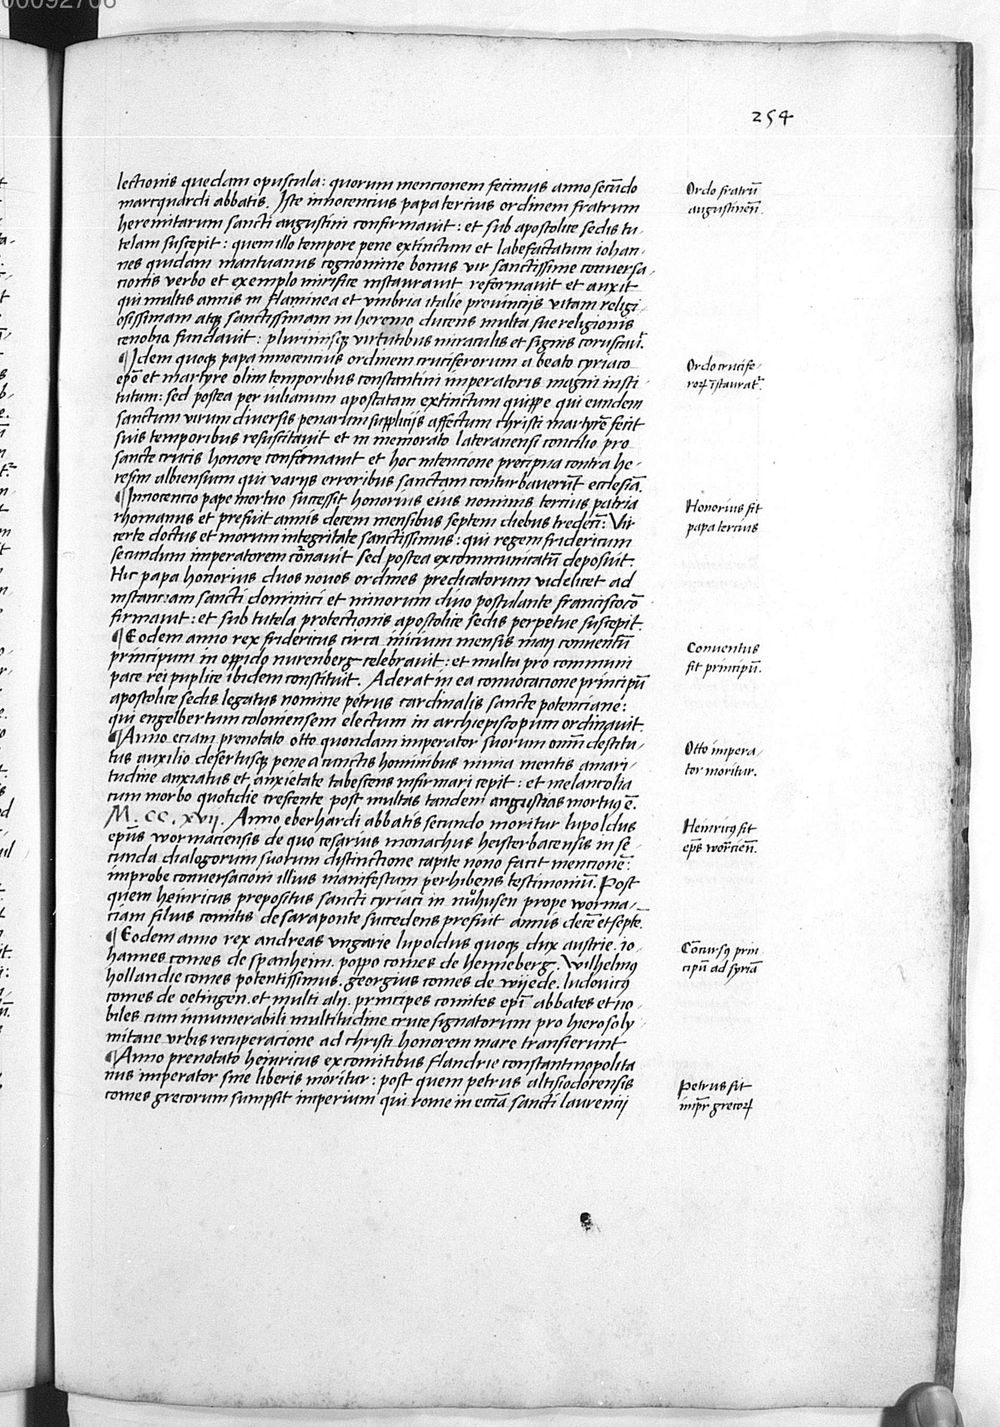 00092706
254
lectionis quedam opuscula: quorum mencionem fecimus anno secūdo
marquardi abbatis. Iste innocencius papa tercius ordinem fratrum
heremitarum sancti augustini confirmauit: et sub apostolice sedis tu-
telam suscepit: quem illo tempore pene extinctum et labefactatum iohan-
nes quidam mantuanus cognomine bonus vir sanctissime conuersa-
cionis verbo et exemplo mirifice instaurauit reformauit et auxit
qui multis annis in flaminea et vmbria italie prouincijs vitam religi-
osissimam atqꝫ sanctissimam in heremo ducens multa sue religionis
cenobia fundauit: plurimisqꝫ virtutibus miraculis et signis coruscauit.
¶Idem quoqꝫ papa innocencius ordinem cruciferorum a beato cyriaco
epō et martyre olim temporibus constantini imperatoris magni insti-
tutum: sed postea per iulianum apostatam extinctum quippe qui eundem
sanctum virum diuersis penarum supplicijs affectum christi martyrē fecit
suis temporibus resuscitauit et in memorato lateranensi concilio pro
sancte crucis honore confirmauit et hoc intencione precipua contra he-
resim albiensium qui varijs erroribus sanctam conturbauerūt ecclesiā.
¶Innocencio pape mortuo successit honorius eius nominis tercius patria
rhomanus et prefuit annis decem mensibus septem diebus tredecī: Vir
certe doctus et morum integritate sanctissimus: qui regem fridericum
secundum imperatorem corōnauit sed postea excommunicatū deposuit.
Hic papa honorius duos nouos ordines predicatorum videlicet ad
instanciam sancti dominici et minorum diuo postulante francisco cō
firmauit: et sub tutela protectionis apostolice sedis perpetue suscepit.
¶Eodem anno rex fridericus circa inicium mensis maij conuentū
principum in oppido nurenberg celebrauit: et multa pro communi
pace rei puplice ibidem constituit. Aderat in ea conuocacione principū
apostolice sedis legatus nomine petrus cardinalis sancte potenciane:
qui engelbertum coloniensem electum in archiepiscopum ordinauit.
¶Anno eciam prenotato otto quondam imperator suorum omnī destitu-
tus auxilio desertusqꝫ pene a cunctis hominibus nimia mentis amari-
tudine anxiatus et anxietate tabescens infirmari cepit: et melancolia
cum morbo quotidie crescente post multas tandem angustias mortuꝰ ē.
M. CC. xvij. Anno eberhardi abbatis secundo moritur lupoldus
epūs wormaciensis de quo cesarius monachus heysterbacensis in se-
cunda dialogorum suorum distinctione capite nono facit mencionē:
improbe conuersacioni illius manifestum perhibens testimoniū. Post
quem heinricus prepositus sancti cyriaci in nuhusen prope worma-
ciam filius comitis de saraponte succedens prefuit annis decē et septē.
¶Eodem anno rex andreas vngarie lupoldus quoqꝫ dux austrie. io-
hannes comes de spanheim. poppo comes de henneberg. Wilhelmꝰ
hollandie comes potentissimus. georgius comes de wijede. ludouicꝰ
comes de oetingen. et multi alij. principes comites epī abbates et no-
biles cum innumerabili multitudine cruce signatorum pro hierosoly-
mitane vrbis recuperacione ad christi honorem mare transierunt
¶Anno prenotato heinricus ex comitibus flandrie constantinopolita
nus imperator sine liberis moritur: post quem petrus altisiodorensis
comes grecorum sumpsit imperium qui rome in eccīa sancti laurencij
Ordo fratrū
augustinēñ.
Ordo crucife-
roꝝ īstaurat᷑.
Honorius fit
papa tercius
Conuentus
fit principū.
Otto impera-
tor moritur.
Heinricꝰ fit
epūs worꝛcieñ.
Cōcursꝰ prin
cipū ad syriā
Petrus fit
impꝛ grecoꝝ